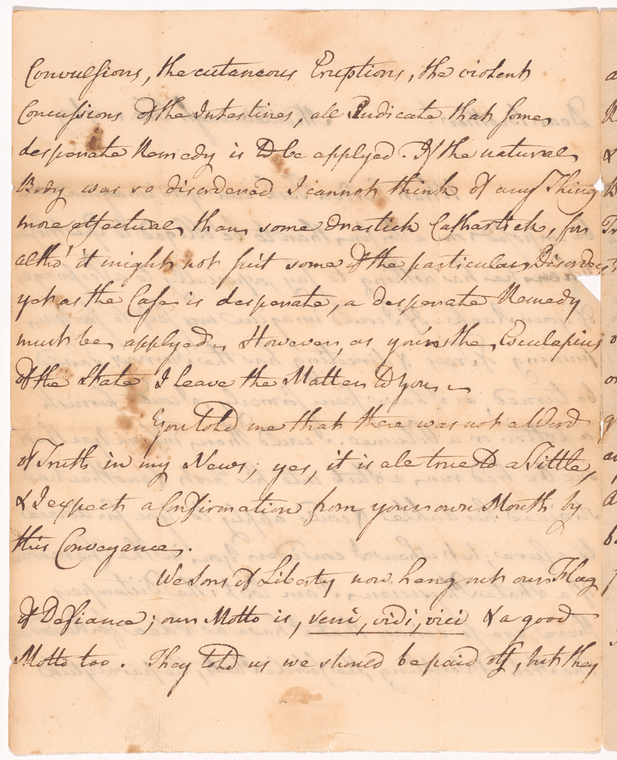 Convulsions, the cutaneous Eruptions, the violent
Concussions of the Intestines, all Indicate that some
desperate Remedy is to be applyed. If the natural
Body was so disordered I cannot think of any Thing
more effectual than some drastick Cathartick, for
altho' it might not suit some of the particular Disorders
yet as the Case is desperate, a desperate Remedy
must be applyed. However, as you're the Esculapius
of the State I leave the Matter to you.
You told me that there was not a Word
of Truth in my News; yes, it is all true to a Tittle,
& I expect a Confirmation from your own Mouth by
this Conveyance.
We Sons of Liberty now hang out our Flag
of Defiance; our Motto is, veni, vidi, vici & a good
Motto too. They told us we should be paid off, but they